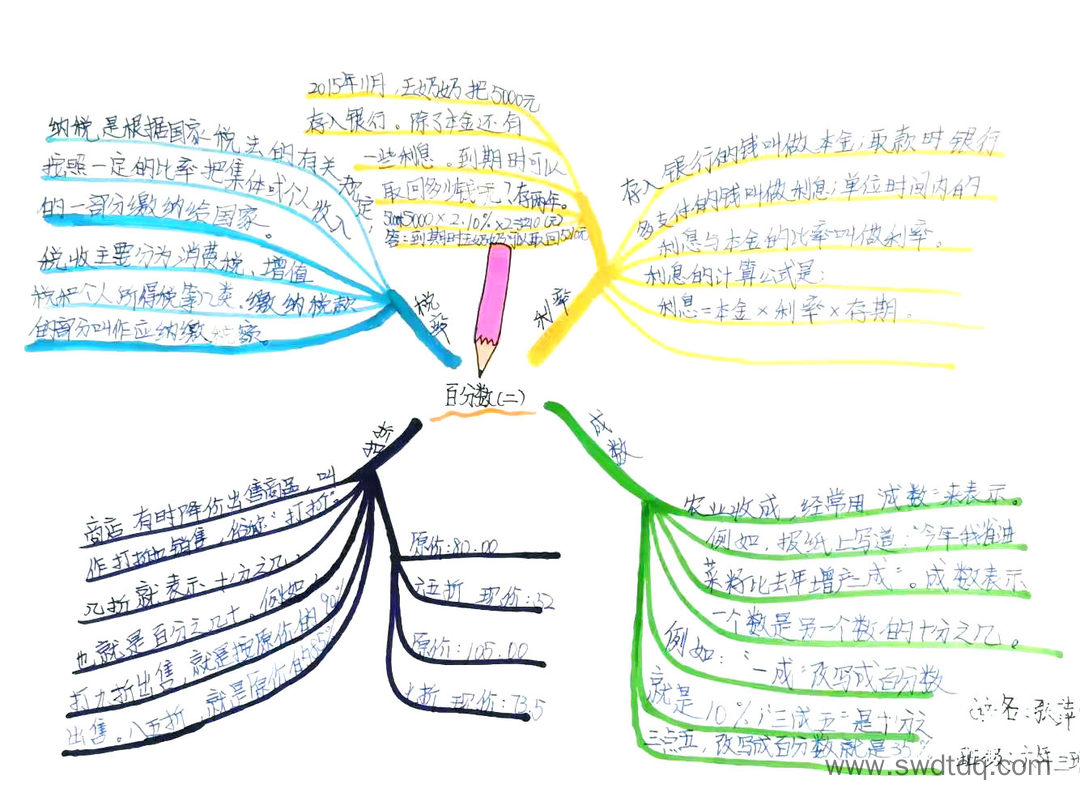 百分数(二)
税率
纳税是根据国家税法的有关规定,
按照一定的比率把集体或个人收入
的一部分缴纳给国家。
税收主要分为消费税,增值
税和个人所得税等几类.缴纳税款
的部分叫作应纳缴税额。
利率
2015年11月,王奶奶把5000元
存入银行。除了本金还有
一些利息。到期时可以
取回多少钱元?存两年。
5000×2.10%×2=210(元)
答:到期时王奶奶可以取回5210元
存入银行的钱叫做本金;取款时银行
多支付的钱叫做利息;单位时间内的
利息与本金的比率叫做利率。
利息的计算公式是:
利息=本金×利率×存期.
折扣
商店有时降价出售商品,叫
作打折扣销售,俗称"打折"。
几折就表示十分之几,
也就是百分之几十。例如,
打九折出售,就是按原价的90%
出售。八五折,就是原价的85%
原价:80.00
六五折 现价:52
原价:105.00
七折 现价:73.5
成数
农业收成,经常用"成数"来表示。
例如,报纸上写道:"今年我省油
菜籽比去年增产一成"。成数表示
一个数是另一个数的十分之几。
例如:"一成"改写成百分数
就是10%;"三成五"是十分之
三点五,改写成百分数就是35%
姓名:张萍
班级:六年三班
www.swdtdq.com